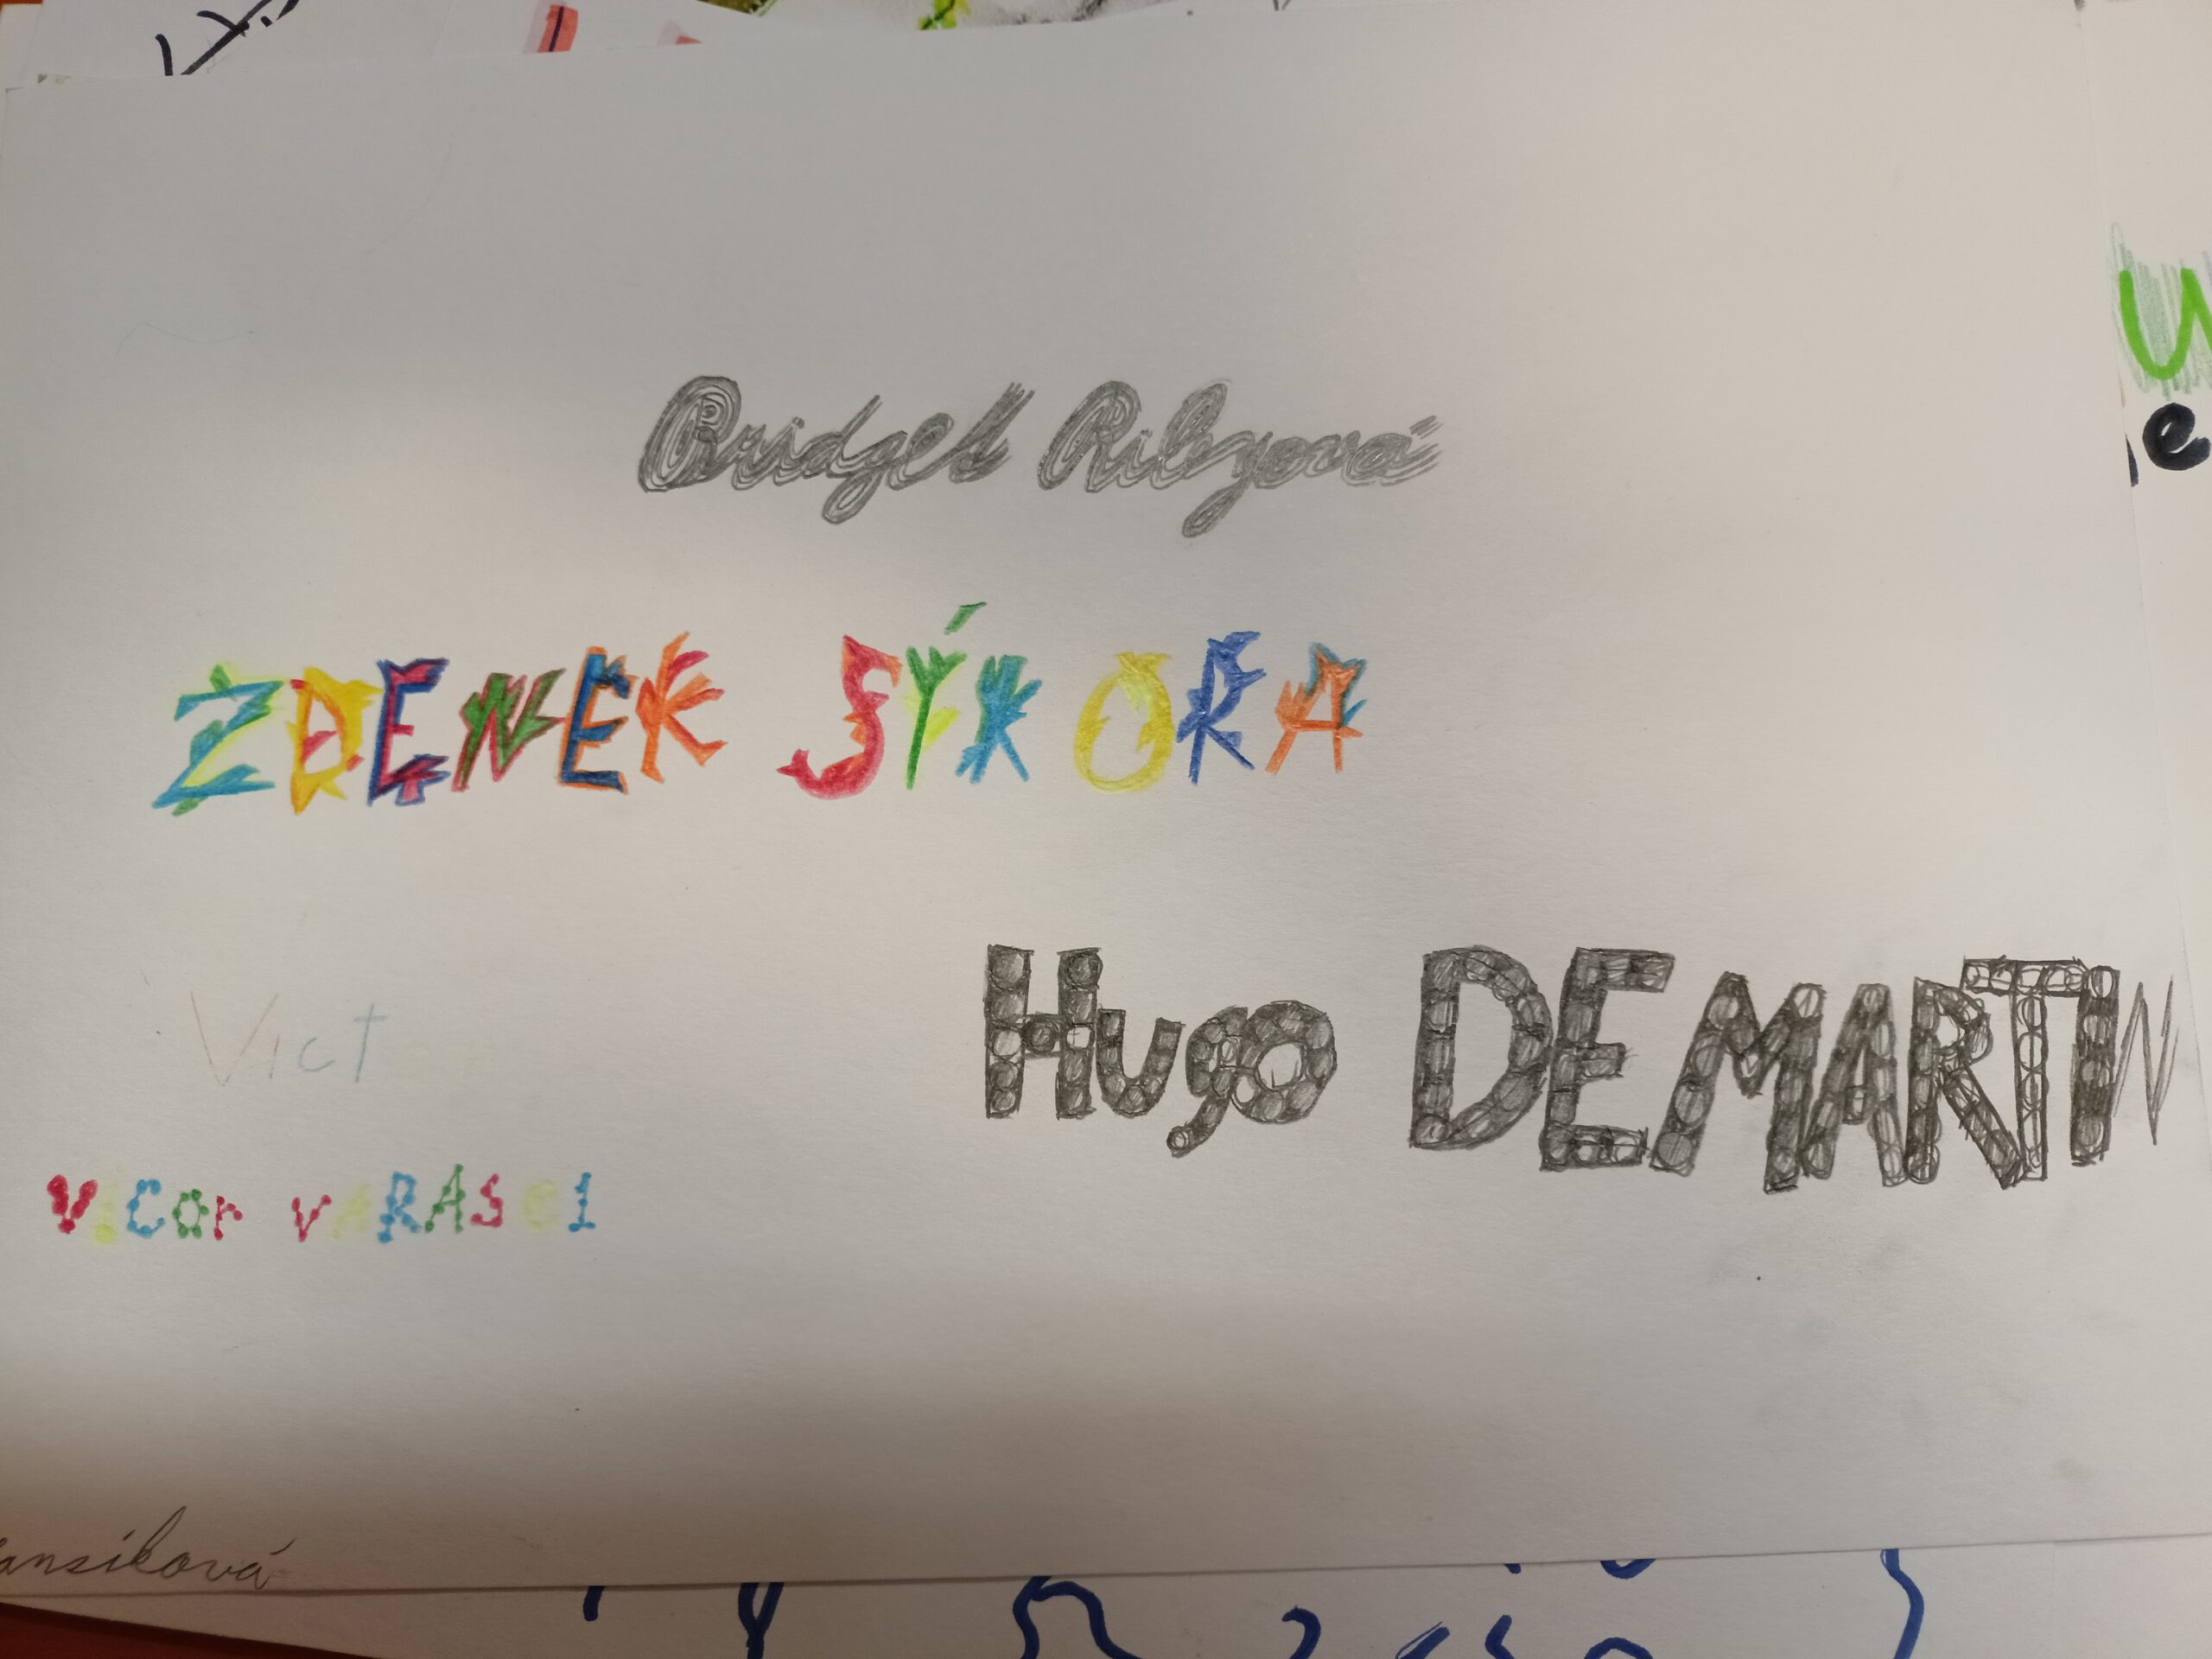 Bridget Rileyová
ZDENEK SÝKORA
Vict
Hugo DEMARTIN
VICOr VARASEI